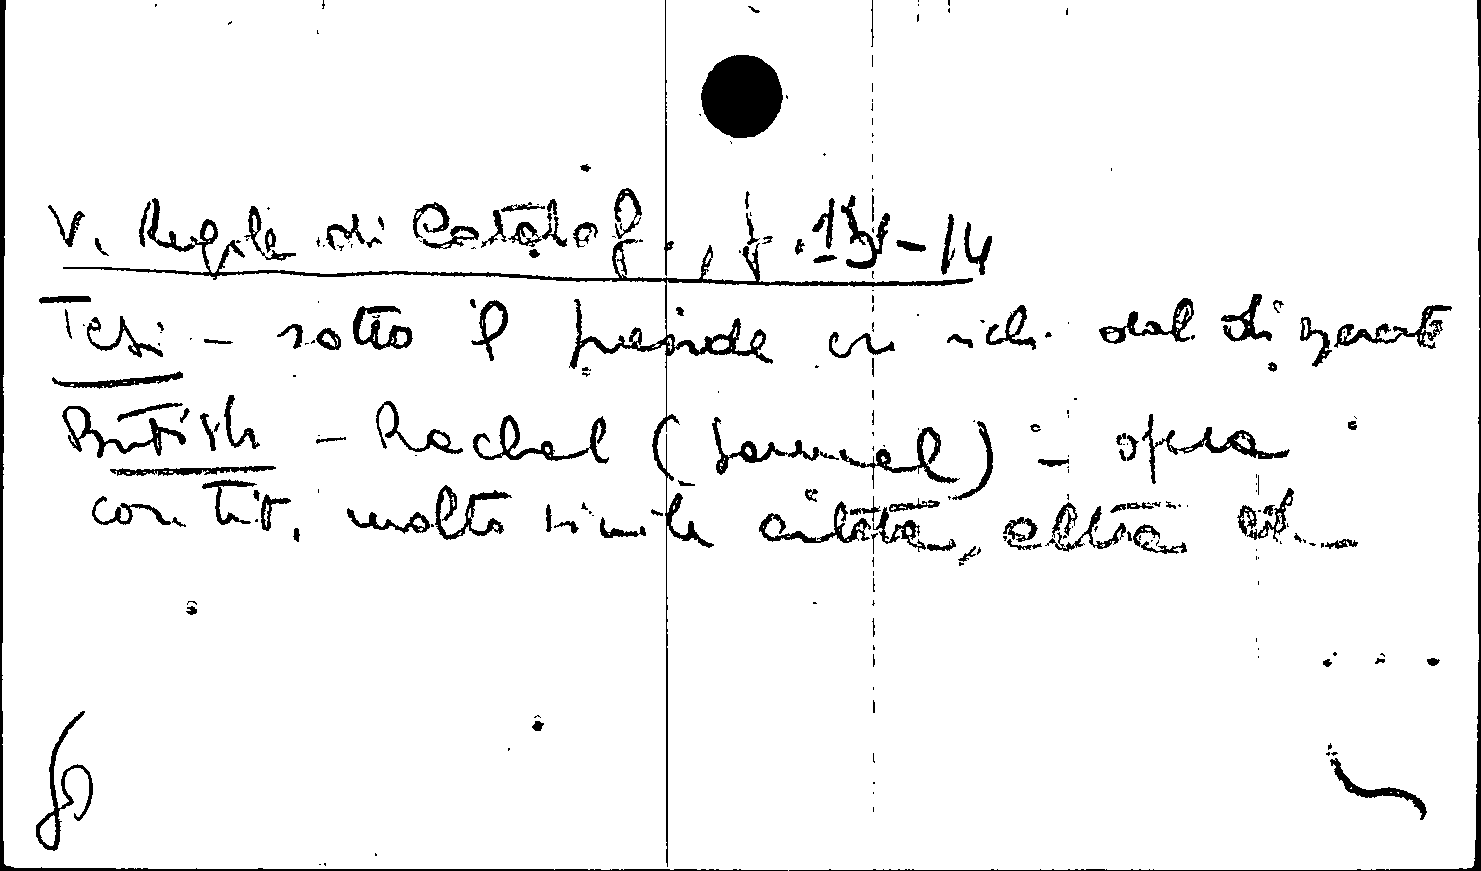 V. Regole di Catalog., p. 13-14
Tesi - sotto il preside con rich. dal disserente
British - Rachel (Samuel) - opera
con tit. molto simile citata, altra ed.